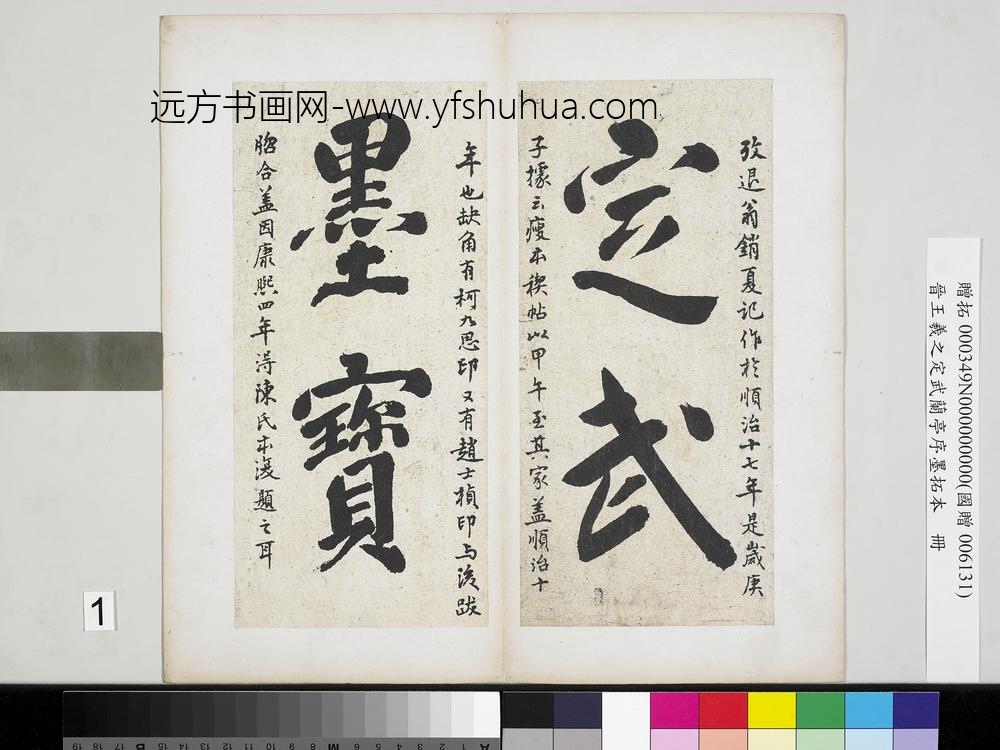 远方书画网-www.yfshuhua.com
攷退翁銷夏记作於順治十七年是歲庚
定武
子據云瘦本稧帖以甲午至其家盖順治十
年也缺角有柯九思印又有趙士楨印与後跋
墨寶
脗合盖因康熙四年淂陳氏本復題之耳
贈拓 000349N000000000(國贈 006131)
晉王羲之定武蘭亭序墨拓本 冊
1